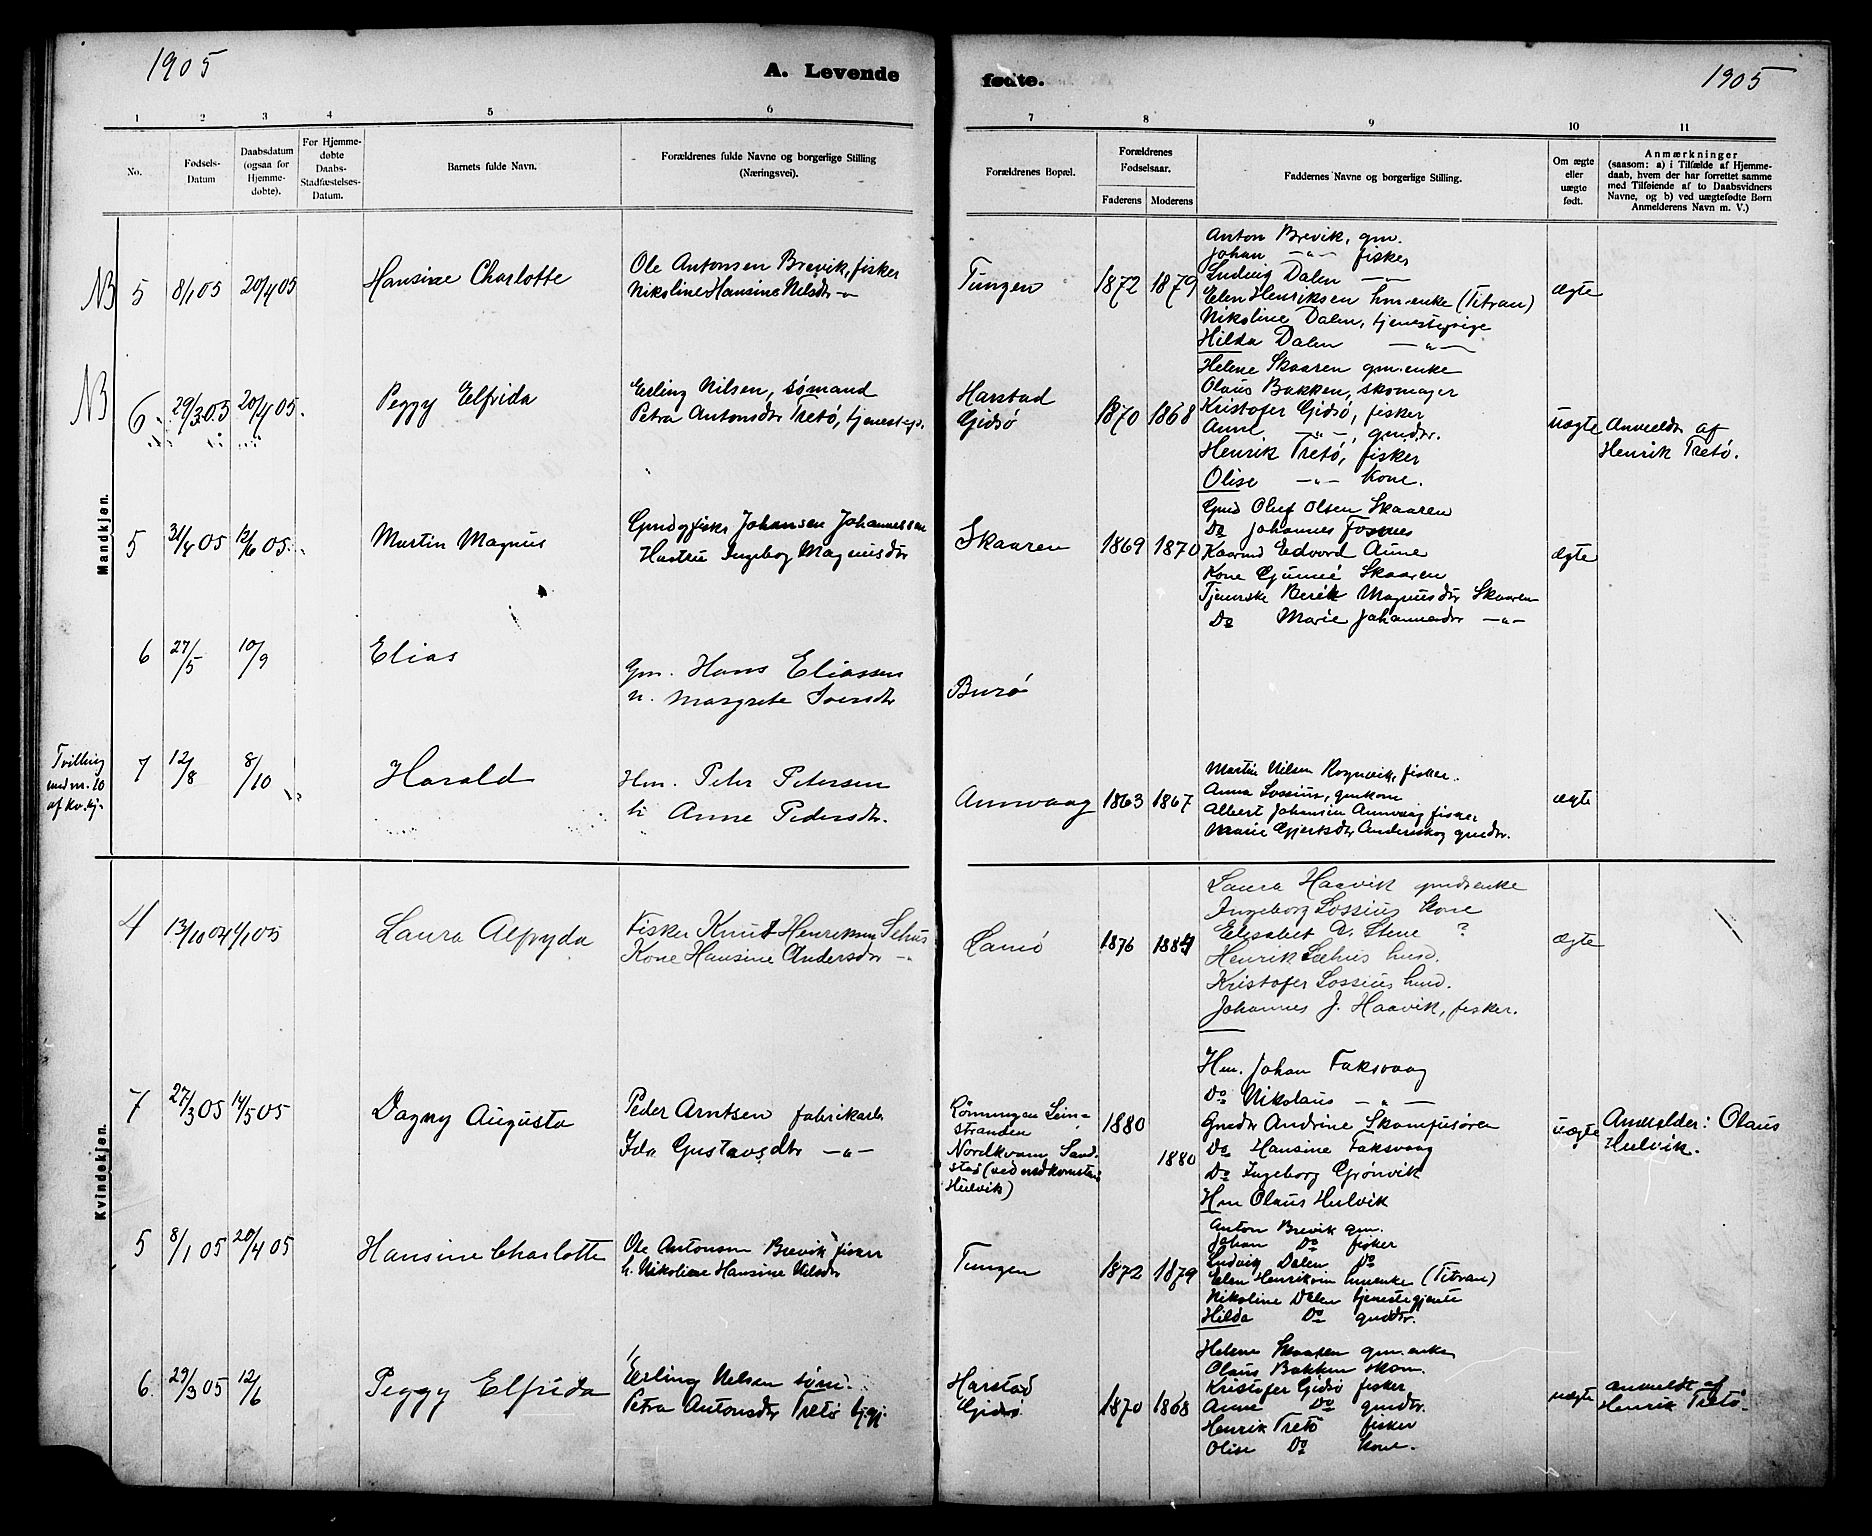 1905
A. Levende
fødte.
1905
1 2 3 4 5 6 7 8 9 10 11
No.
Fødsels-
Datum
Daabsdatum
(ogsaa for
Hjemme-
døbte).
For Hjemme-
døbte
Daabs-
Stadfæstelses-
Datum.
Barnets fulde Navn.
Forældrenes fulde Navne og borgerlige Stilling
(Næringsvei).
Forældrenes Bopæl.
Forældrenes
Fødselsaar.
Faderens Moderens
Faddernes Navne og borgerlige Stilling.
Om ægte
eller
uægte
født.
Anmærkninger
(saasom: a) i Tilfælde af Hjemme-
daab, hvem der har forrettet samme
med Tilføiende af to Daabsvidners
Navne, og b) ved uægtefødte Børn
Anmelderens Navn m. V.)
Mandkjøn.
NB 5 8/1 05 20/4 05
Hansine Charlotte
Ole Antonsen Brevik, fisker
Nikoline Hansine Nilsdr -"-
Tungen 1872 1879
Anton Brevik, gm.
Johan -"- fisker
Ludvig Dalen -"-
Elen Henriksen hm.enke (Titran)
Nikoline Dalen, tjenestepige
Hilda Dalen -"-
ægte
NB 6. 29/3 05 20/4 05.
Peggy Elfrida
Erling Nilsen, sømand
Petra Antonsdr Tretø, tjenestep.
Harstad
Gidsø
1870 1868
Helene Skaaren gm.enke
Olaus Bakken, skomager
Kristofer Gidsø, fisker
Anne -"-, gmdr.
Henrik Tretø, fisker
Olise -"- Kone.
uægte
Anmeldt af
Henrik Tretø.
5 31/4 05 12/6 05.
Martin Magnus
Gmd og fisker Johansen Johannessen
Hustru Ingeborg Magnusdtr
Skaaren 1869 1870
Gmd Oluf Olsen Skaaren
Do Johannes Fosnes
Edvard Aune
Kone Skaaren
Magnusdtr Skaaren
Do Marie Johannesdr -"-
ægte
6 27/5 10/9
Elias
Gm. Hans Eliassen
h. Margrete Iversdtr
Burø
Tvilling
med nr. 10
af kv.kj.
7 12/8 8/10
Harald
Hm. Peter Petersen
h. Anne Pedersdtr.
Aunvaag 1863 1867
Martin Nilsen Rognvik, fisker.
Anna Lossius, gmkone
Albert Johansen Aunvaag fisker
Marie Gjertsdtr Anderskog gmdtr.
ægte
Kvindekjøn.
4 13/10 04 6/1 05
Laura Alfryda
Fisker Knut Henriksen Sehus
Kone Hansine Andersdtr -"-
Lamø 1876 1884
Laura Haavik gmdsenke
Ingeborg Lossius Kone
Elisabet D. Stene ?
Henrik Sæhus husd.
Kristofer Lossius husd.
Johannes J. Haavik, fisker.
ægte
7 27/3 05 14/5 05
Dagny Augusta
Peder Arntsen fabrikarb.
Ida Gustavsdtr -"-
Rønningen Lein-
stranden
Nordkvam Sand-
stad (ved nedkomsten
Hulvik)
1880
1880
Hm. Johan Faksvaag
Do Nikolaus -"-
Gmdtr Andrine Skampusøren
Do Hansine Faksvaag
Do Ingeborg Grønvik
Hm Olaus Hulvik
uægte
Anmelder: Olaus
Hulvik.
5 8/1 05 20/4 05
Hansine Charlotte
Ole Antonsen Brevik fisker
h. Nikoline Hansine Nilsdtr
Tungen 1872 1879
Anton Brevik gm.
Johan Do fisker
Ludvig Dalen Do
Elen Henriksen hmenke (Titran)
Nikoline Dalen tjenestegjente
Hilda Do gmdtr.
6. 29/3 05 12/6
Peggy Elfrida
Erling Nilsen søm.
Petra Antonsdtr Tretø tj.gj.
Harstad
Gidsø
1870 1868
Helene Skaaren gm.enke
Olaus Bakken skom.
Kristofer Gidsø fisker
Anne Do gmdtr.
Henrik Tretø fisker
Olise Do kone.
uægte
anmeldt af
Henrik Tretø.